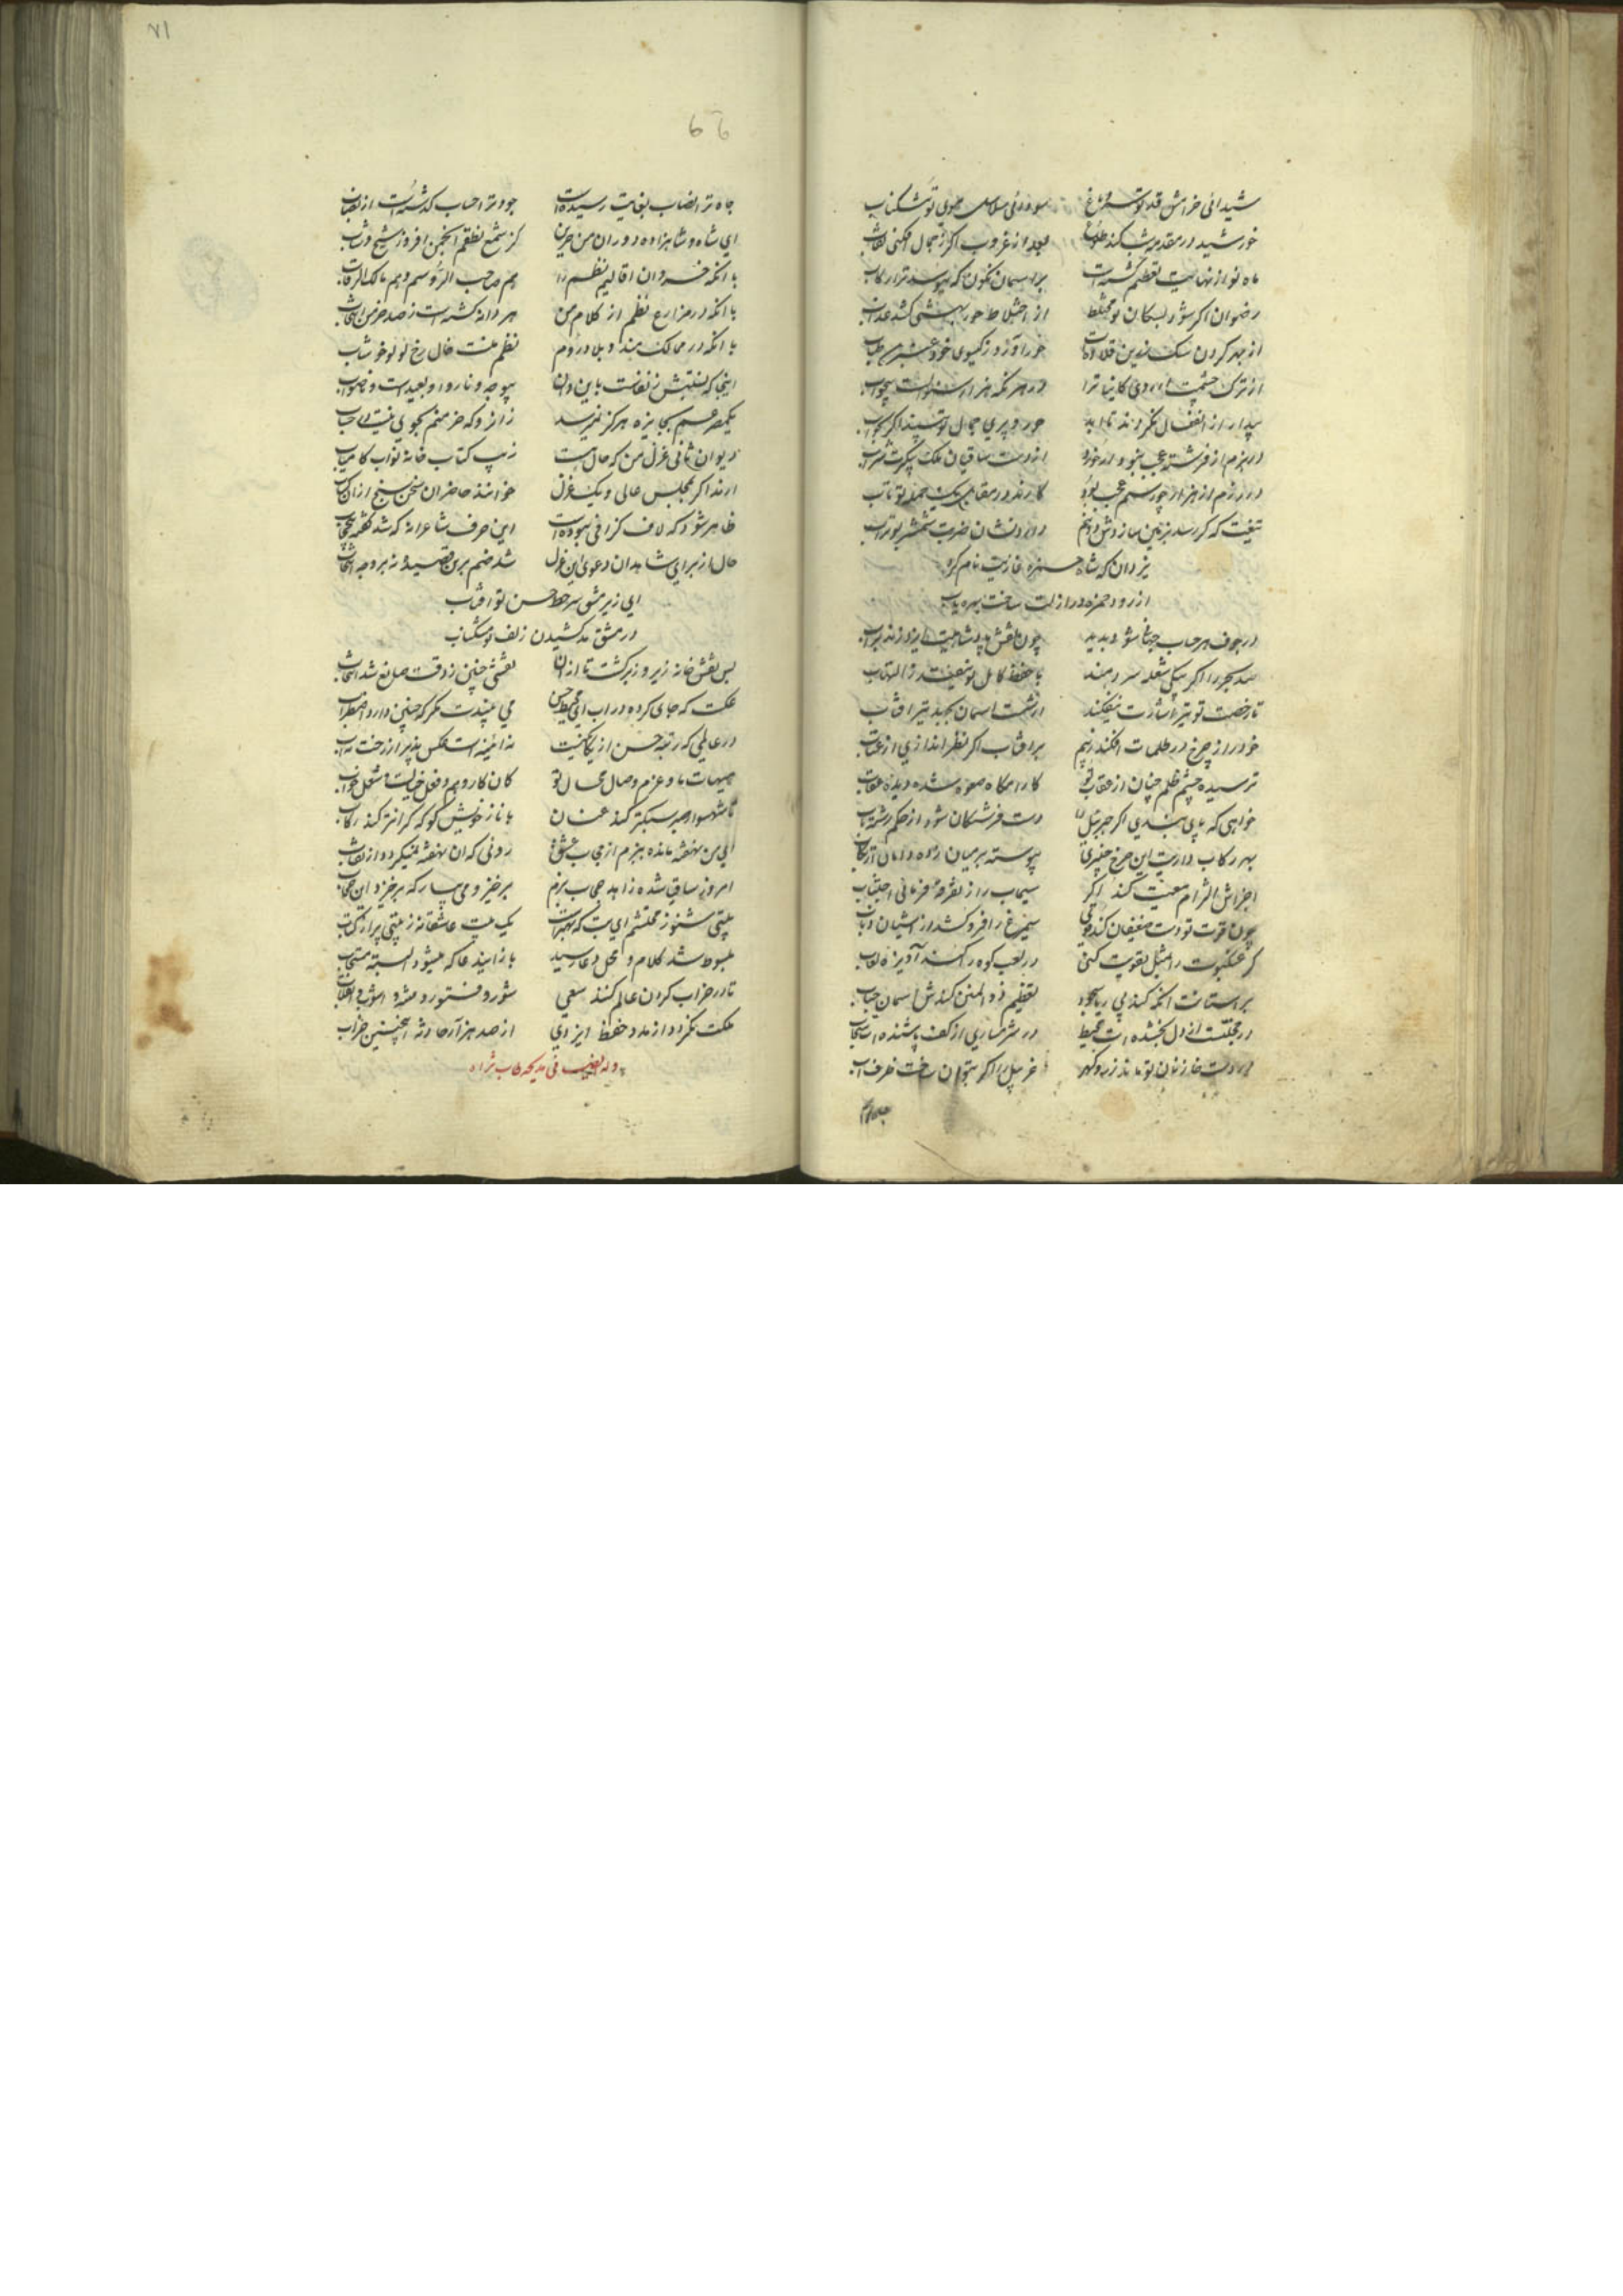 شیدائی خرامش قد تو سرو باغ سودائی سلاسل موی تو مشکناب
خورشید در مقدمه شب کند طلوع بعد از غروب اگر ز جمال افکنی نقاب
ماه نو از نهایت تعظیم گشته است بر آسمان نگون که ببوسد ترا رکاب
رضوان اگر شود بسکان تو مختلط از اختلاط حور بهشتی کشد عذاب
از بهر کردن سک زرین قلاده‌ات حور آورد ز گیسوی خود عنبرین طناب
از ترک چشمت در هر نکه هزار سؤالست بیجواب
بیدار از انفعال نگردند تا ابد حور و پری جمال تو بینند اگر بخواب
در بزم از فرشته عجب نبود ار خورد از دست ساقیان ملک پیکرت شراب
در رزم از هزار چو رستم عجب بود کارند در مقابل یک حمله تو تاب
تیغت که گر رسد بزمین سازدش دو نیم داده نشان ضربت شمشیر بوتراب
یزدان که شاه حمزه غازیت نام کرد
از زور حمزه در ازلت ساخت بهره یاب
در جوف هر حباب جهانی شود پدید چون نقش پادشاهیت ایزد زند بر آب
صد بحر را اگر بیکی شعله سر دهند با حفظ کامل تو نیفتد ز التهاب
تا رخصت تو تیر اشارت نیفکند از شست آسمان نجهد تیر آفتاب
خود را ز چرخ در ظلمات افکند ز بیم بر آفتاب اگر نظر اندازی از عتاب
ترسیده چشم ظلم چنان از عقاب تو کارامگاه صعوه شده دیده عقاب
خواهی که پای بندی اگر جبرئیل را دست فرشتگان شود از حکم رشته تاب
بهر رکاب داریت این چرخ چنبری پیوسته بر میان زده دامان
اجزاش التزام معیت کند اگر سیماب را ز تفرقه فرمائی اجتناب
چون قوت تو دست ضعیفان کند قوی سیمرغ را فرو کشد از آشیان ذباب
گر عنکبوت را مثل تقویت کنی در لعب کوه را کند آویزه لعاب
بر آستانت آنکه کند پی ریا سجود تعظیم ذو المنن کندش آسمان جناب
در خجلت از دل بخشنده‌ات محیط در شرمساری از کف پاشنده‌ات سحاب
در دست خازنان تو ماند زر و گهر غربیل را اگر بتوان ساخت ظرف آب
۷۱
جاه ترا نصاب بغایت رسیده است جود ترا حساب گذشته است از نصاب
ای شاه و شاهزاده دوران من حزین کز شمع نطقم انجمن افروز شیخ و شاب
با آنکه خسروان اقالیم نظم را هم صاحب الرؤسم و هم مالک الرقاب
با آنکه در مزارع نظم از کلام من هر دانه گشته است ز صد خرمن انتخاب
با آنکه در ممالک هند و بلاد روم نظم منست خال رخ لولو خوشاب
اینجا که نسبتش ز نفاست باین و آن بیوجه و ناروا و بعیدست و ناصواب
یکمصرعم بجایزه هرگز نمیرسد زانرو که خرمنم بجوی نیست در حساب
دیوان ثانی غزل من که حال هست زیب کتاب خانه نواب کامیاب
ارند اگر بمجلس عالی و یک غزل خوانند حاضران سخن سنج از آن کتاب
ظاهر شود که لاف گزافی نبوده است این حرف شاعرانه که شد گفته بیحجاب
حال از برای شاهدان دعوی این غزل شد ضم برین قصیده نه بر وجه انتخاب
ای زیر مشق سر خط حسن تو آفتاب
در مشق مد کشیدن زلف تو مشکناب
بس نقش خانه زیر و زبر گشت تا از آن نقشی چنین ز دقت صانع شد انتخاب
عکست که جای کرده در آب ای محیط حسن می بیندت مگر که چنین دارد اضطراب
در عالمی که رتبه حسن از یگانگیست نه آئینه است عکس پذیر از رخت نه آب
هیهات ما و عزم وصال محال تو کان کار وهم و فعل خیالست و شغل خواب
تا شهسوار صبر سبکتر کند عنان با ناز خویش گو که گرانتر کند رکاب
ای من نهفته مانده ببزم از حجاب عشق روئی که آن نهفته نمیگردد از نقاب
امروز ساقی شده زاهد حجاب بزم برخیز و می بیار که برخیزد این حجاب
بیتی شنو ز محتشم ای بت که بهتر است یک بیت عاشقانه ز بیتی پر از کتاب
مبسوط شد کلام و محل دعا رسید بازآ بیند عا که میشود البته مستجاب
تا در خراب کردن عالم کنند سعی شور و فتور و فتنه و آشوب و انقلاب
ملکت نگردد از مدد حفظ ایزدی از صد هزار حادثه اینچنین خراب
وله ایضا فی مدیحه طاب ثراه